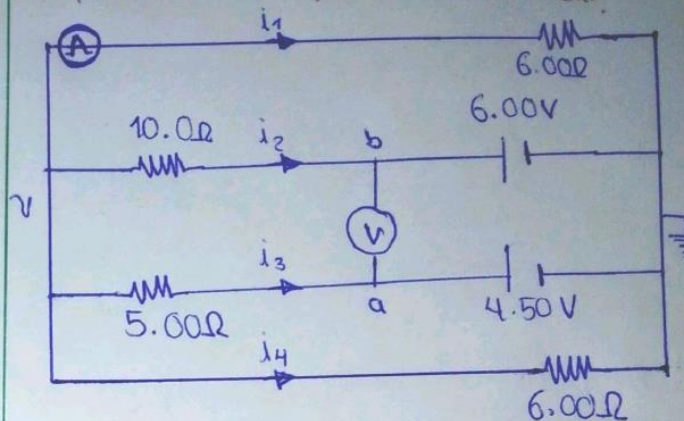 A
i₁
6.00Ω
10.0Ω
i₂
b
6.00V
v
V
i₃
a
5.00Ω
4.50V
i₄
6.00Ω